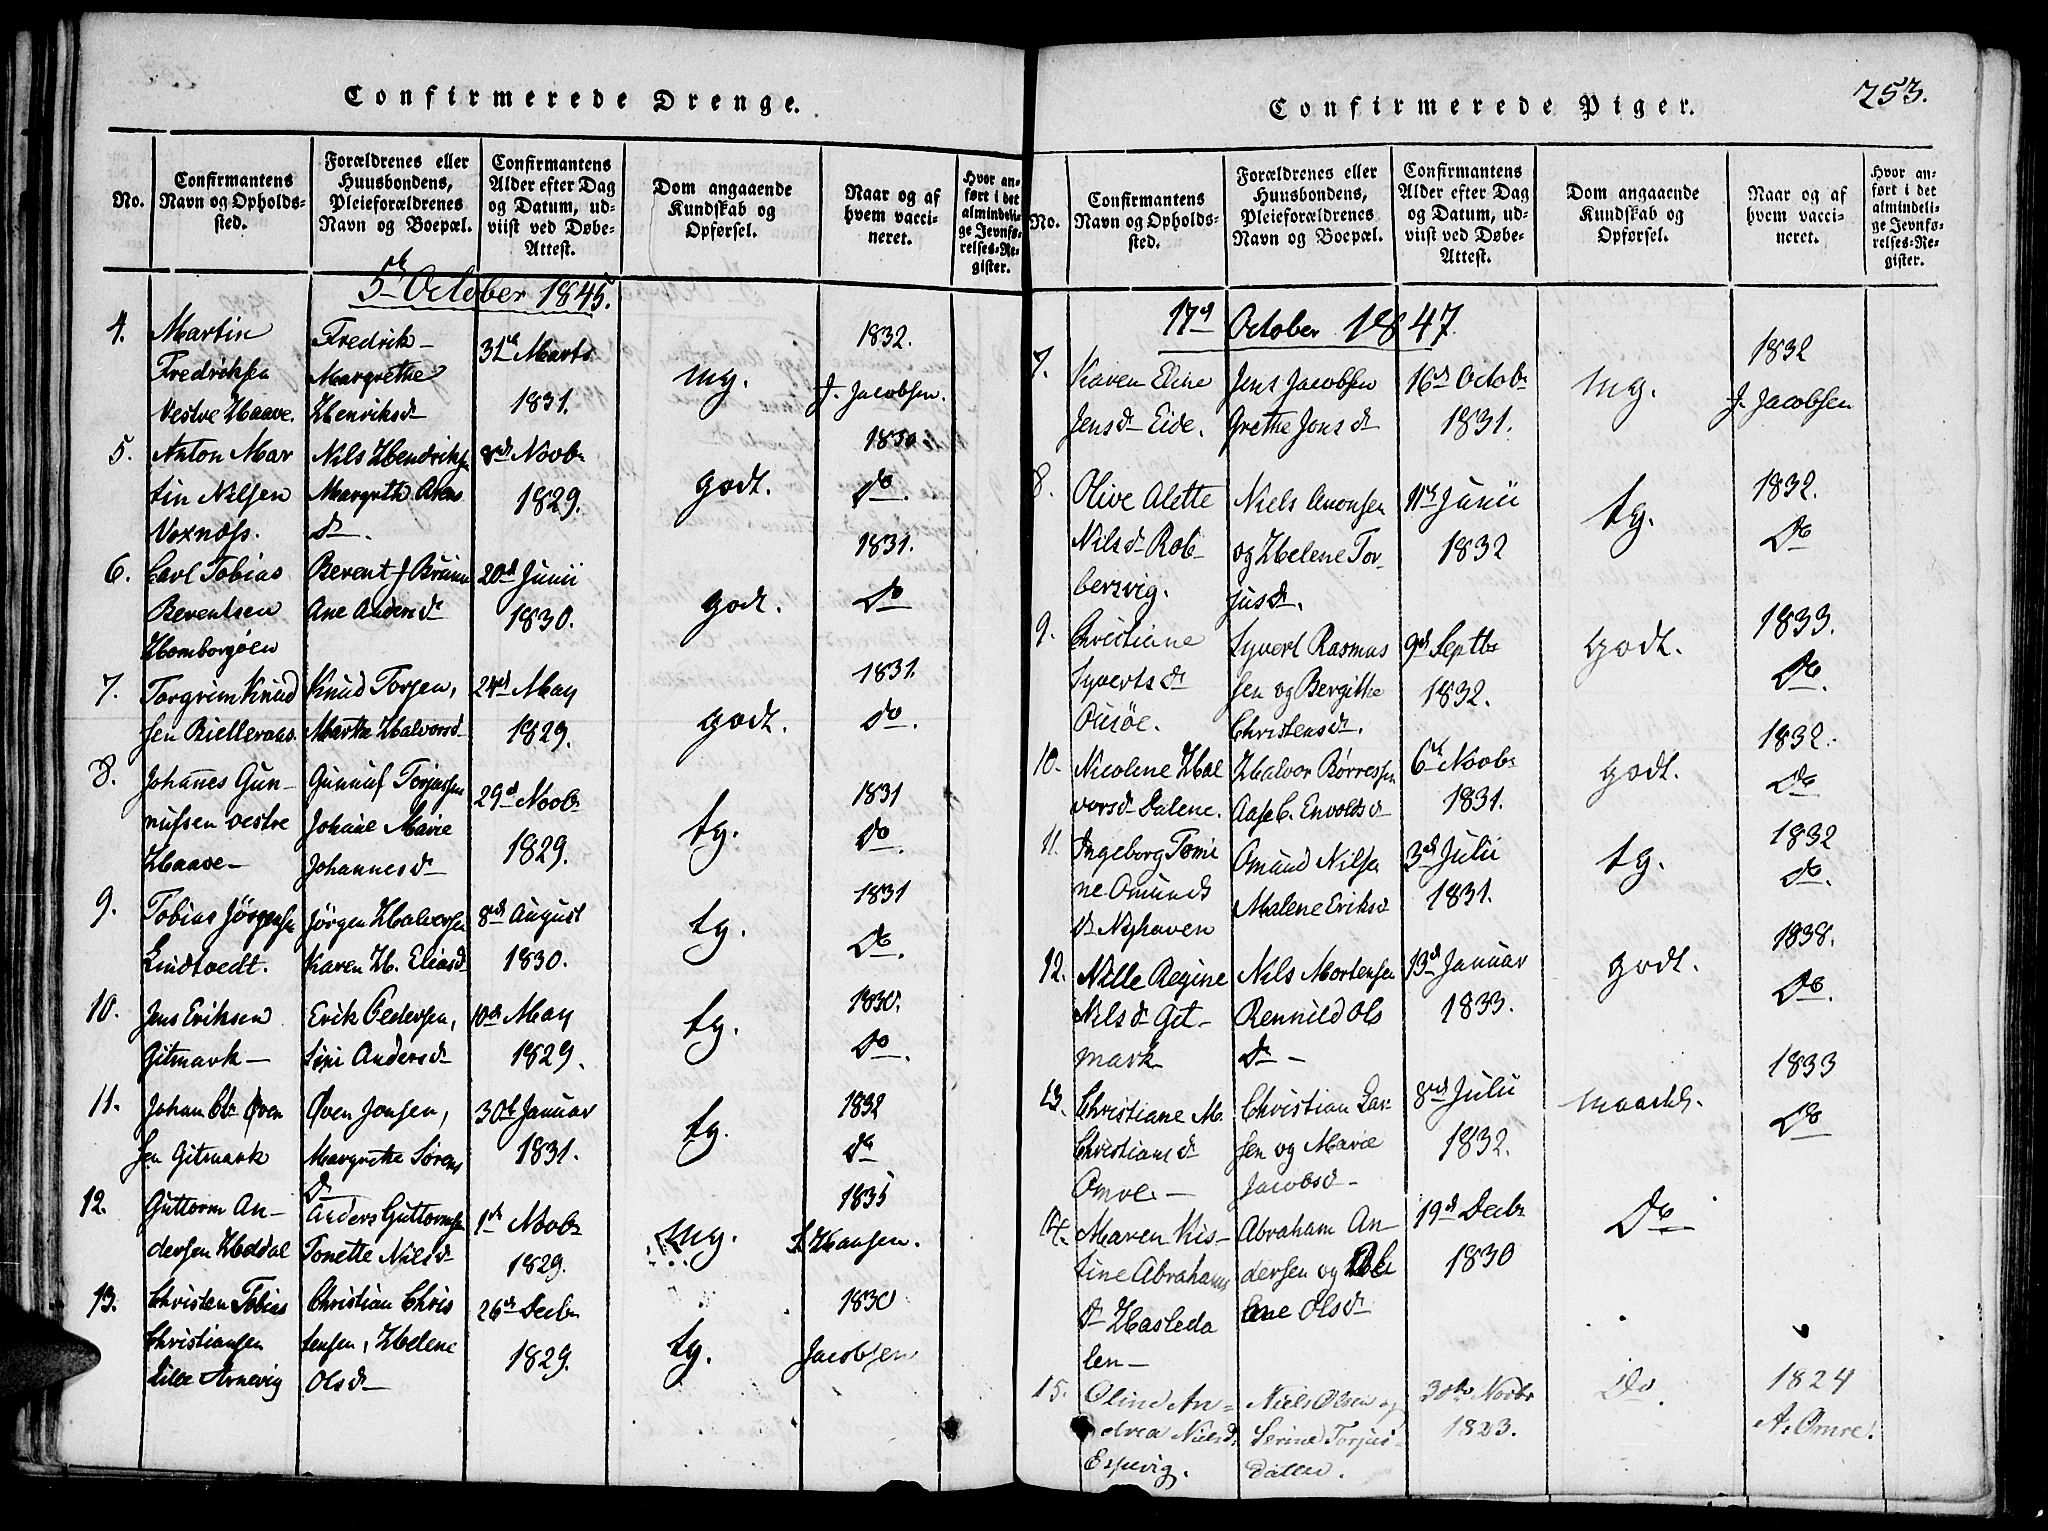 Confirmerede Drenge.
No.
Confirmantens Navn og Opholds-
sted.
Forældrenes eller
Huusbondens,
Pleieforældrenes
Navn og Boepæl.
Confirmantens
Alder efter Dag
og Datum, ud-
viist ved Døbe-
Attest.
Dom angaaende
Kundskab og
Opførsel.
Naar og af
hvem vacci-
neret.
Hvor an-
ført i det
almindeli-
ge Jevnfø-
relses-Re-
gister.
5te October 1845.
4.
Martin
Fredriksen
Vestre Haave.
Fredrik
Margrethe
Henriksd
31te Marts
1831.
mg.
1832.
J. Jacobsen.
5.
Anton Mar
tin Nilsen
Voxnøss.
Nils Hendriksen
Margreth Arens
d.
8de Novbr
1829.
godt.
1830.
Do.
6.
Carl Tobias
Berentsen
Homborgøen
Berent J Bruun
Ane Andersd
20d Junii
1830.
godt.
1831.
Do
7.
Torgrim Knud
sen Bielleraas.
Knud Torjsen,
Marthe Halvorsd
24de May
1829.
godt.
1831.
Do.
8.
Johannes Gun-
nufsen vestre
Haave-
Gunnuf Torjussen
Johane Marie
Johannesd
29d Novbr
1829.
tg.
1831
Do.
9.
Tobias Jörgensen
Lindtvedt.
Jörgen Halvorsen
Karen H. Eliasd
8de August
1830.
tg.
1831
Do.
10.
Jens Eriksen
Gitmark-
Erik Pedersen,
Siri Andersd
10de May
1829.
tg.
1830.
Do.
11.
Johan Chr Øven
sen Gitmark
Øven Jonsen,
Margrethe Sørens
D
30t Januar
1831.
tg.
1832
Do
12.
Guttorm An-
dersen Heddal
Anders Guttormsen
Tonette Nilsd
1ste Novbr
1829.
mg.
1835
Hansen.
13.
Christen Tobias
Christiansen
Lille Arnevig
Christian Chris
tensen, Helene
Olsd
26de Decbr
1829.
tg.
1830
Jacobsen
Confirmerede Piger.
253.
No.
Confirmantens
Navn og Opholds-
sted.
Forældrenes eller
Huusbondens,
Pleieforældrenes
Navn og Boepæl.
Confirmantens
Alder efter Dag
og Datum, ud-
viist ved Døbe-
Attest.
Dom angaaende
Kundskab og
Opførsel.
Naar og af
hvem vacci-
neret.
Hvor an-
ført i det
almindeli-
ge Jevnfø-
relses-Re-
gister.
17d October 1847
7.
Karen Eline
Jensd Eide.
Jens Jacobsen
Grethe Jonsd
16d Octobr
1831.
mg.
1832
J. Jacobsen
8.
Olive Alette
Nilsd Rob-
bersvig.
Niels Amonsen
og Helene Tor-
jusd.
11te Junii
1832
tg.
1832.
Do
9.
Christiane
Syvertsd
Ousøe.
Syvert Rasmus
sen og Bergithe
Christensd.
9de Septbr
1832.
godt.
1833.
Do.
10.
Nicoline Hal
vorsd Dalene.
Halvor Børresen
Aase C. Envoldsd
6te Novbr
1831.
godt.
1832.
Do
11.
Ingeborg Tomi
ne Omunds
d Nyhaven
Omund Nilsen
Malene Eriksd
3de Julii
1831.
tg.
1832
do.
12.
Nille Regine
Nilsd Git-
mark
Nils Mortensen
Rennild Ols
D-
13d Januar
1833.
godt.
1838.
Do.
13.
Christiane M.
Christiansd
Omre.-
Christian Lar-
sen og Marie
Jacobsd-
8de Julii
1832.
maadel.
1833
Do
14.
Maren Kis-
tine Abrahams
d Hasleda
len-
Abraham An-
dersen og
Olsd
19d Decbr
1830
Do
15.
Oline An-
drea Nielsd.
Espevig.
Niels Olsen og
Serine Torjus-
datter.
30te Novbr
1823.
Do.
1824
A. Omre!